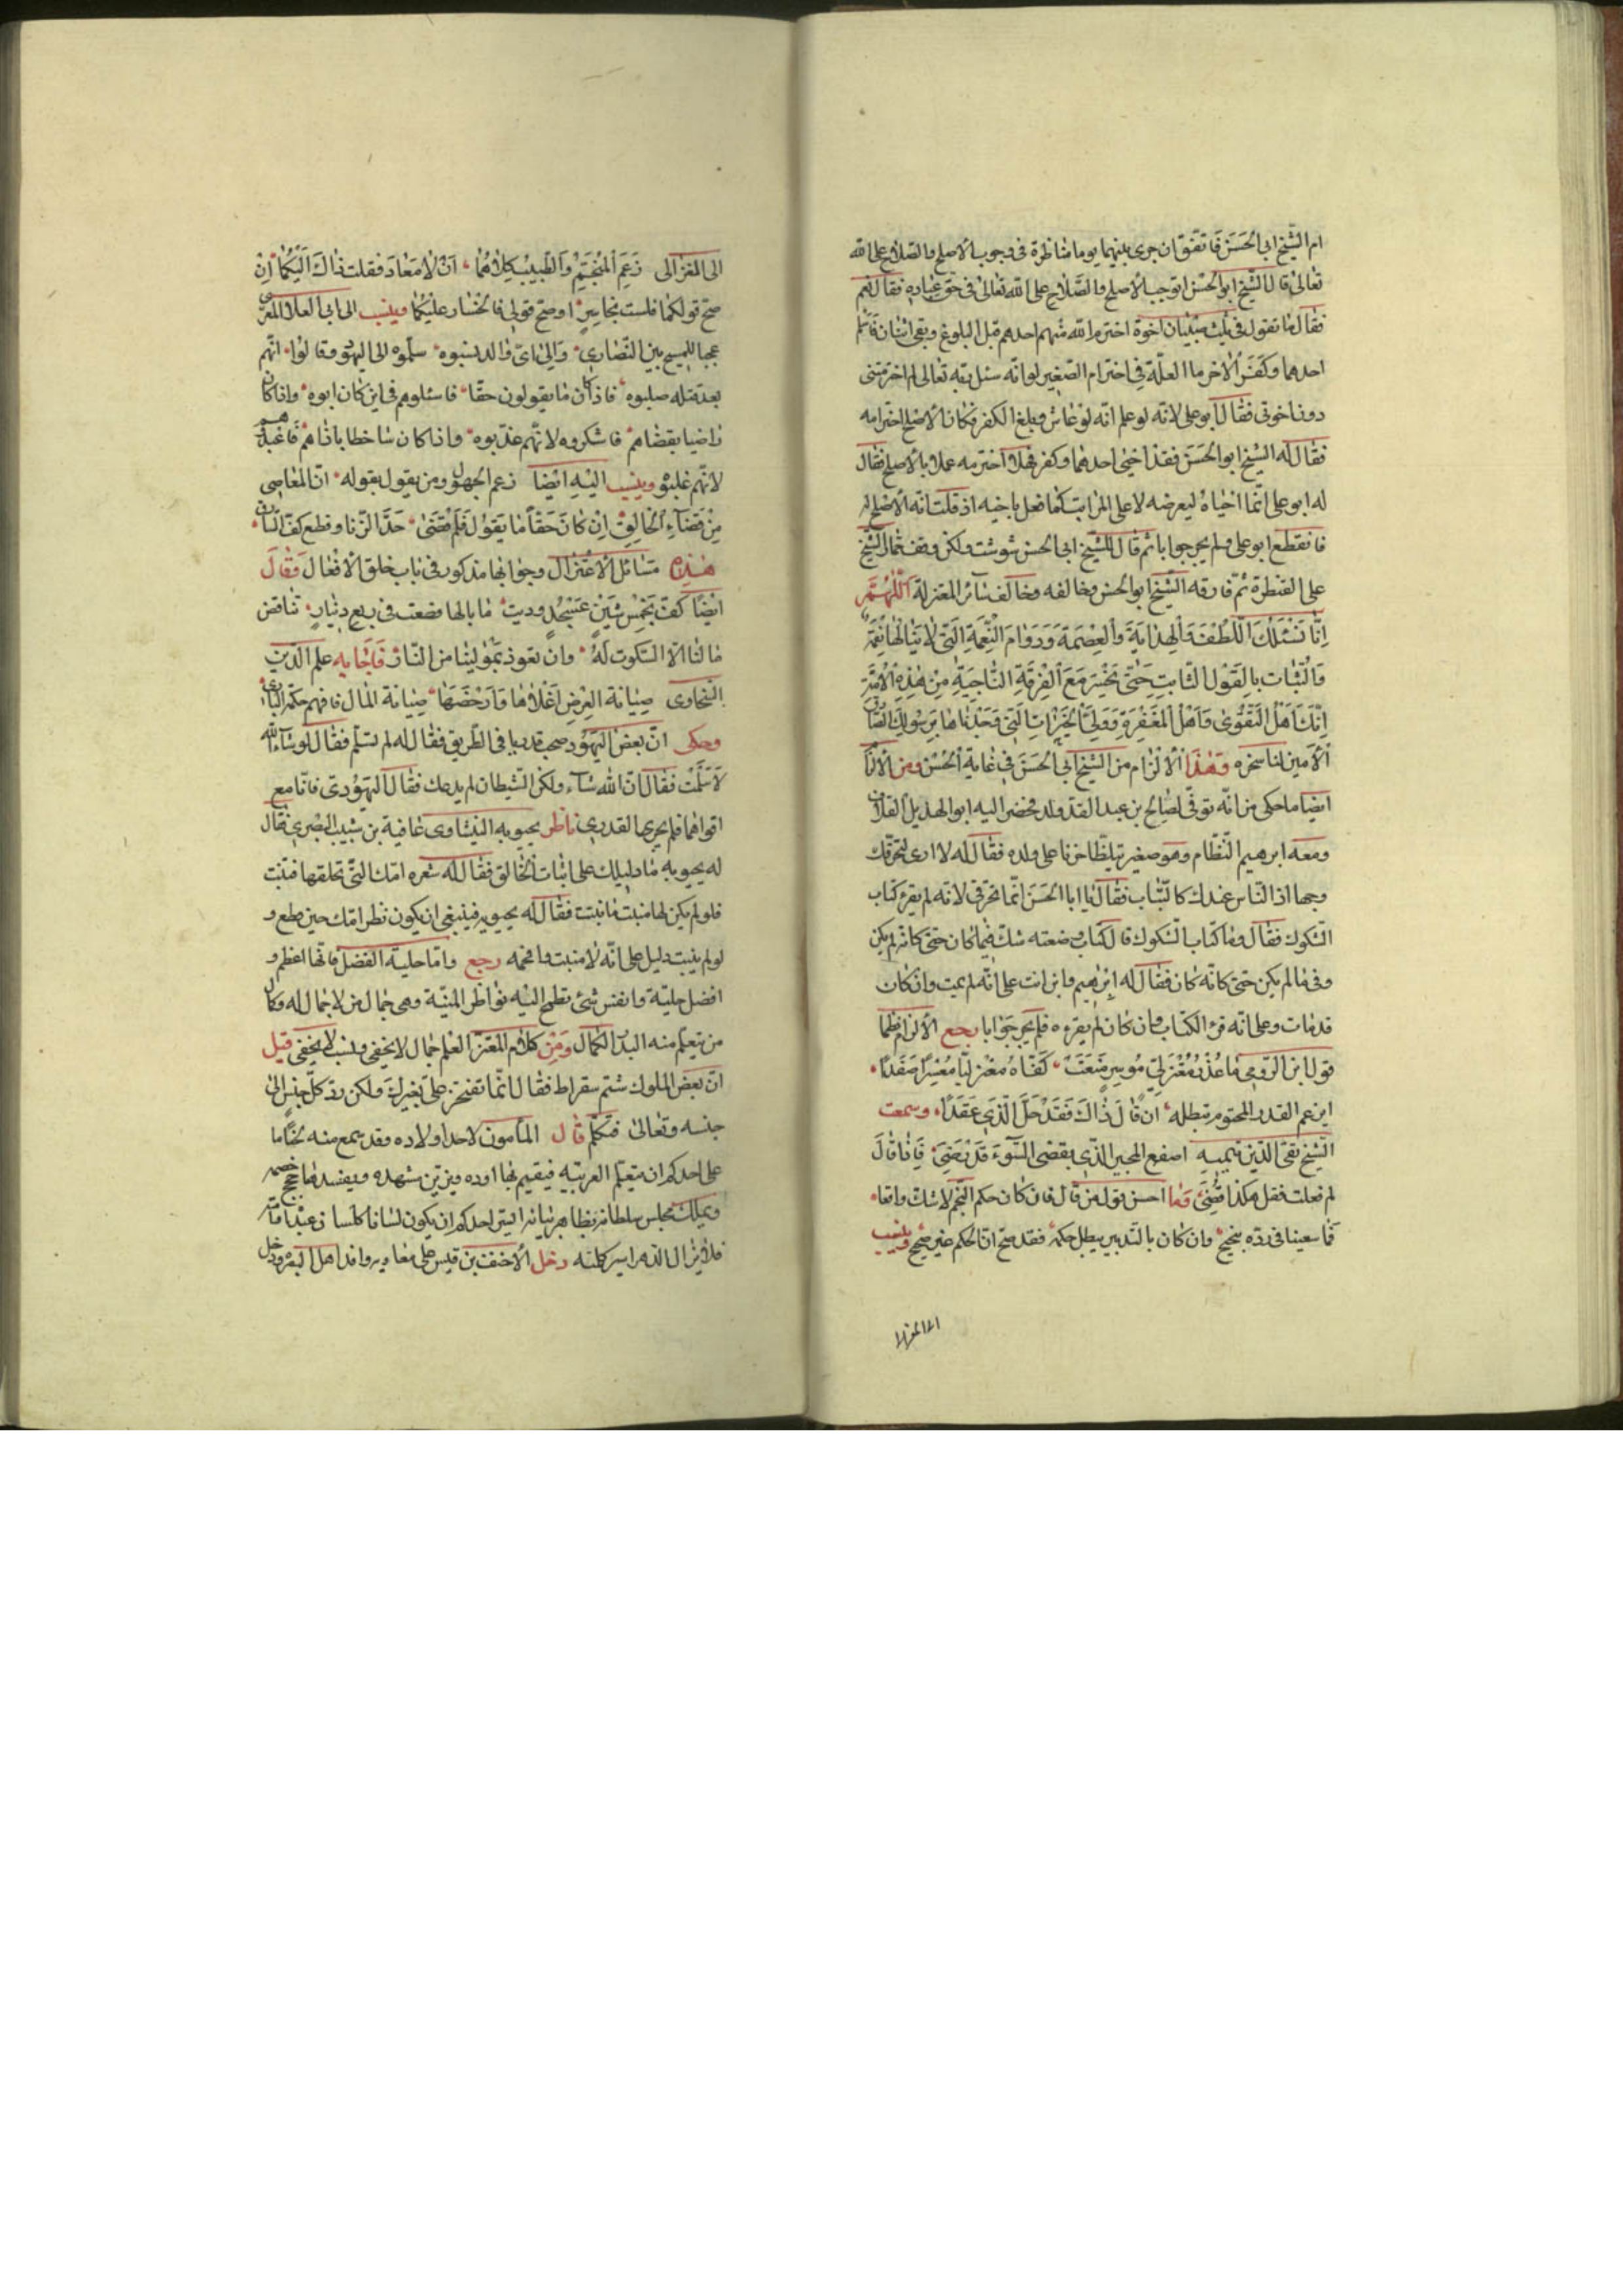 ام الشّيخ ابى الحَسَن فَاتفق ان جرى بينهما يوما مناظرة فى وجوب الأصلح والصّلاح على الله
تعَالىٰ قال الشّيخ ابو الحسن اتوجب الأصلح والصَّلاح على الله تعالىٰ فى حقّ عباده فقال نعم
فقال ما تقول فى ثلث صبيان اخوة اخترم الله منهم احدهم قبل البلوغ وبقى اثنان فاسلم
احدهما وكفَر الأخر ما العلّة فى اخترام الصّغير لو انّه سئل ربّه تعالى لم اخترمتنى
دون اخوتى فقال ابو على لانّه لو علم انّه لو عاش وبلغ الكفر فكان الأصلح اخترامه
فقال له الشيخ ابو الحسَن فقد احيى احدهما وكفر فهلا اخترمه عملا بالأصلح فقال
له ابو على انّما احياه ليعرضه لاعلى المراتب كما فعل باخيه اذ قلت انّه الأصلح له
فانقطع ابو على ولم يحر جوابا ثم قال للشّيخ ابى الحسن شوشت ولكن وقف حمار الشّيخ
على القنطرة ثم فارقه الشّيخ ابو الحسن وخالفه وخالف سائر المعتزلة اللّهُمَّ
اِنَّا نَسْئَلُكَ اللُّطْفَ وَالهِدَايَةَ وَالعِصْمَةَ وَدَوَامَ النِّعْمَةِ الَّتى لا يَنَالُها نِقْمَة
وَالثَّبات بِالقَوْلِ الثَّابِتِ حَتّى نَحْشُرَ مَعَ الفِرْقَةِ النَّاجِيَةِ مِنْ هٰذِهِ الأُمَّةِ
اِنّكَ اَهْلُ التَّقْوىٰ وَاَهْلُ المَغْفِرَةِ وَوَلِىُّ الخَيْرَاتِ الَّتى وَجَدْنَاهَا بِرَسُولِكَ الصَّادِق
الأَمين لنا سخره وَهٰذَا الألزام من الشّيخ ابى الحَسَن فى غايَة الحُسْن ومن الألزام
ايضا ما حكى من انّه توفّى لصَالح بن عبد القدّ ولد فحضر اليه ابو الهذيل العلاف
ومعه ابرهيم النّظام وهو صغير تلظّا حزنا على ولده فقال له لا ارى لتحرّقك
وجها اذ النّاس عندك كالنّبات فقال يا ابا الحسَن انّما تحرقى لانّه لم يقرء كتاب
الشّكوك فقال وما كتاب الشكوك قال كتاب وضعته شكّ فيما كان حتى كانّه لم يكن
وفى ما لم يكن حتى كانّه كان فقال له ابرهيم وابن انت على انّه لم يمت وان كان
قد مات وعلى انّه قرء الكتاب وان كان لم يقرءه فلم يحر جوابا رجع الألزام نظما
قول ابن الرّومى ما عُذْرُ مُعْتَزِلِىّ مُوسِرٍ مَنَعَتْ كَفّاهُ مُعْتَزِليًّا مُعْسِرًا صَفَدًا
ايزعم القدر المحتوم ثبطه اِن قالَ ذٰاكَ فَقَدْ حَلَّ الّذى عَقَدَا وسمعت
الشّيخ تقى الدّين تيميه اصفع المجبر الذّى بقضى السّوء قَدْ رَضِىَ فَاذا قٰالَ
لم فعلت فقل هكذا قُضِىَ وَما احسن قول من قال فان كان حكم النّجم لا شكّ واقعا
فما سعينا فى ردّه بنجيح وان كان بالتّدبير يبطل حكمه فقد صحّ انّ الحكم غير صحيح وينسب
الى الغزالى
الى المغزالى زَعَمَ المُنَجِّمُ وَالطَّبيبُ كِلاهُمَا اَنْ لا مَعادَ فقلت ذاكَ اِلَيْكُمَا اِنْ
صَحّ قولكما فلست بخاسِرٍ او صحّ قولى فالخسار عليكما وينسب الى ابى العلا المعرّى
عجبا للمسيح بين النّصارى وَالى اىّ وَالد نسبوه سلّموه الى اليهود وقالوا انّهم
بعد قتله صلبوه فاذا كان ما يقولون حقّا فاسئلوهم فى اين كان ابوه واذا كان
راضيا بقضاهم فاشكروه لانّهم عذّبوه واذا كان ساخطا باذاهم فاعبدوهم
لانّهم غلبوه وينسب اليْهِ ايْضاً زعم الجهول ومن يقول بقوله انّ المعاصى
مِنْ قَضَآءِ الخالِقِ اِنْ كانَ حَقًّا مَا يَقُولُ فَلِمْ قَضَىٰ حَدَّ الزّنا وقطع كفّ السّارق
هٰذِه مَسائل الأعتزال وجوابها مذكور فى باب خلق الأفعال وَقٰالَ
ايْضًا كَفّ بِخَمْسِ مِئينٍ عَسْجَدٍ وديت ما بالها قطعت فى ربع دينارٍ تناقض
ما لنا الّا السّكوت لَهُ وان نعوذ بِمَوْلينَا من النّار فَاجَابه علم الدّين
السّخاوى صِيَانة العِرْضِ اَغْلاهَا وَاَرْخَصَهَا صِيَانة المٰال فافهم حكمة البارى
وحكى انّ بعض اليَهُود صحب قدريا فى الطّريق فقال له لم لا تسلّم فقال لو شاء الله
لاسَلَمْتُ فقال انّ الله شاء ولكن الشّيطان لم يدعك فقال اليَهُودىّ فانا مع
اقواهما فلم يحر القدرى ناظر يحيويه النيشاورى عافية بن شبيب البصرى فقال
له يحيويه ما دليلك على اثبات الخالق فقال له شعره امّك التّى تحلقها فتنبت
فلو لم يكن لها منبت ما نبتت فقال له يحيويه فينبغى ان يكون نظر امّك حين قطع و
لو لم ينبت دليل على انّه لا منبت فافحمه رجع وامّا حلية الفضل فانّها اعظم و
افضل حلية وانفس شىء تطمح اليْه نواظر المنيّة وهى جمال من لا جمال له وكان
من تعلّم منه البدر الكمال وَمِنْ كلام المعْتز العلم جمال لا يخفى ونسب لا يخفى قيل
انّ بعض الملوك شتم سقراط فقال انّما تفتخر علىّ بغيرك ولكن ردّ كلّ جنس الىٰ
جنسه وتعالىٰ فتكلّم قال المأمون لاحد اولاده وقد سمع منه لحنا ما
على احدكم ان يتعلّم العربيّة فيقيم بها اوده ويزيّن مشهده ويفسد بها حجج خصمه
ويملك مجلس سلطانه بظاهر بيانه اليس احدكم ان يكون لسانه كلسان عبده وامته
فلا يزال الدّهر اسير كلمته دخل الأحنف بن قيس على معاويه وافدا اهل البصره ودخل